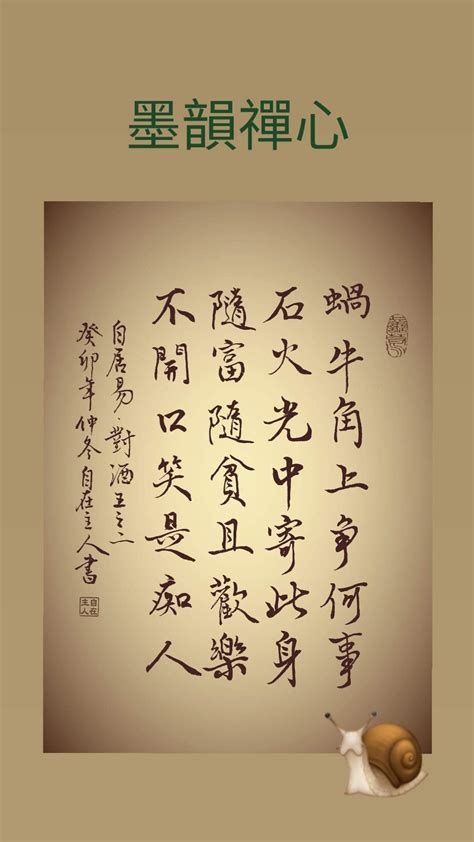 墨韻禪心
蝸牛角上争何事
石火光中寄此身
隨富隨貧且歡樂
不開口笑是痴人
白居易·對酒五之二
癸卯年仲冬自在主人書
自在主人